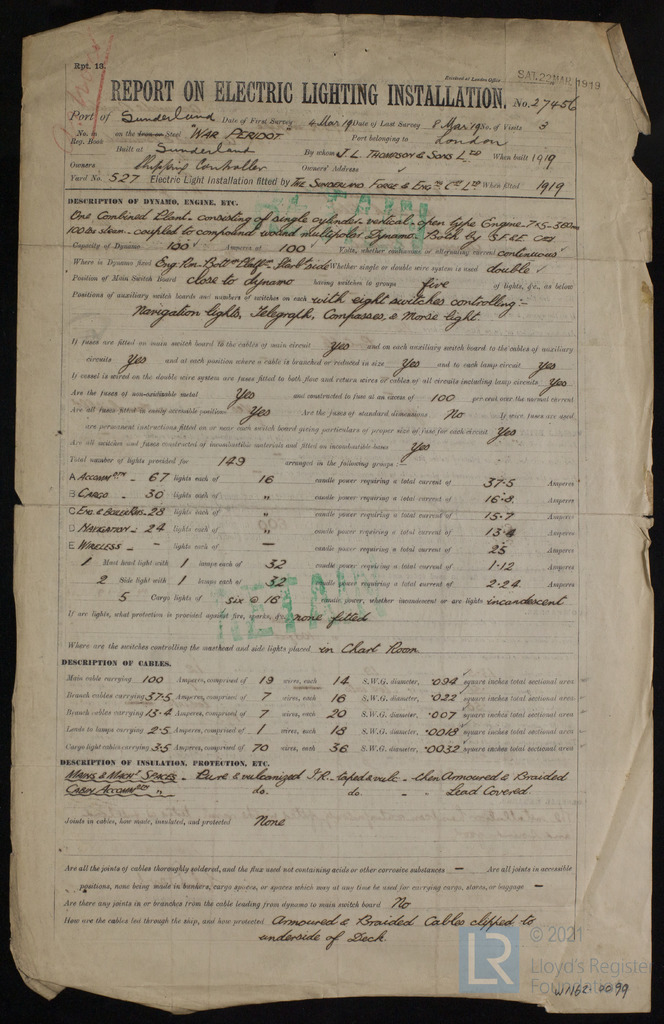 Rpt. 13.
Received at London Office
SAT. 22 MAR. 1919
REPORT ON ELECTRIC LIGHTING INSTALLATION. No. 27456
Port of Sunderland Date of First Survey 4 Mar 19 Date of Last Survey 8 Mar 19 No. of Visits 3
No. in Reg. Book on the Iron or Steel "WAR PERIDOT" Port belonging to London
Built at Sunderland By whom J. L. THOMPSON & SONS LTD When built 1919
Owners Shipping Controller Owners' Address
Yard No. 527 Electric Light Installation fitted by THE SUNDERLAND FORGE & ENG CO LTD When fitted 1919
DESCRIPTION OF DYNAMO, ENGINE, ETC.
One Combined Plant - consisting of single cylinder - vertical - open type Engine - 7x5 - 360
100 lbs steam - coupled to compound wound multipolar Dynamo. Both by S.F.&E. Co
Capacity of Dynamo 100 Amperes at 100 Volts, whether continuous or alternating current continuous
Where is Dynamo fixed Eng. Rm. Bott Platf Starb side Whether single or double wire system is used double
Position of Main Switch Board close to dynamo having switches to groups five of lights, &c., as below
Positions of auxiliary switch boards and numbers of switches on each with eight switches controlling :-
Navigation lights, Telegraph, Compasses, & Morse light
If fuses are fitted on main switch board to the cables of main circuit Yes and on each auxiliary switch board to the cables of auxiliary
circuits Yes and at each position where a cable is branched or reduced in size Yes and to each lamp circuit Yes
If vessel is wired on the double wire system are fuses fitted to both flow and return wires or cables of all circuits including lamp circuits Yes
Are the fuses of non-oxidizable metal Yes and constructed to fuse at an excess of 100 per cent over the normal current
Are all fuses fitted in easily accessible positions Yes Are the fuses of standard dimensions No If wire fuses are used
are permanent instructions fitted on or near each switch board giving particulars of proper size of fuse for each circuit Yes
Are all switches and fuses constructed of incombustible materials and fitted on incombustible bases Yes
Total number of lights provided for 149 arranged in the following groups :—
A ACCOMMDTN - 67 lights each of 16 candle power requiring a total current of 37.5 Amperes
B CARGO - 30 lights each of " candle power requiring a total current of 16.8 Amperes
C ENG & BOILER RMS - 28 lights each of " candle power requiring a total current of 15.7 Amperes
D NAVIGATION - 24 lights each of " candle power requiring a total current of 13.4 Amperes
E WIRELESS - - lights each of — candle power requiring a total current of 25 Amperes
1 Mast head light with 1 lamps each of 32 candle power requiring a total current of 1.12 Amperes
2 Side light with 1 lamps each of 32 candle power requiring a total current of 2.24 Amperes
5 Cargo lights of six @ 16 candle power, whether incandescent or arc lights incandescent
If arc lights, what protection is provided against fire, sparks, &c. none fitted
Where are the switches controlling the masthead and side lights placed in Chart Room
DESCRIPTION OF CABLES.
Main cable carrying 100 Amperes, comprised of 19 wires, each 14 S.W.G. diameter, .094 square inches total sectional area
Branch cables carrying 37.5 Amperes, comprised of 7 wires, each 16 S.W.G. diameter, .022 square inches total sectional area
Branch cables carrying 13.4 Amperes, comprised of 7 wires, each 20 S.W.G. diameter, .007 square inches total sectional area
Leads to lamps carrying 2.5 Amperes, comprised of 1 wires, each 18 S.W.G. diameter, .0018 square inches total sectional area
Cargo light cables carrying 3.5 Amperes, comprised of 70 wires, each 36 S.W.G. diameter, .0032 square inches total sectional area
DESCRIPTION OF INSULATION, PROTECTION, ETC.
MAINS & MACHY SPACES - Pure & vulcanized I.R. - taped & vulc - then Armoured & Braided
CABIN ACCOMMDTN " do. do. - - Lead Covered
Joints in cables, how made, insulated, and protected None
Are all the joints of cables thoroughly soldered, and the flux used not containing acids or other corrosive substances — Are all joints in accessible
positions, none being made in bunkers, cargo spaces, or spaces which may at any time be used for carrying cargo, stores, or baggage —
Are there any joints in or branches from the cable leading from dynamo to main switch board No
How are the cables led through the ship, and how protected Armoured & Braided Cables clipped to
underside of Deck
RETAIN
RETAIN
LR
© 2021
Lloyd's Register
Foundation
W1162-0099